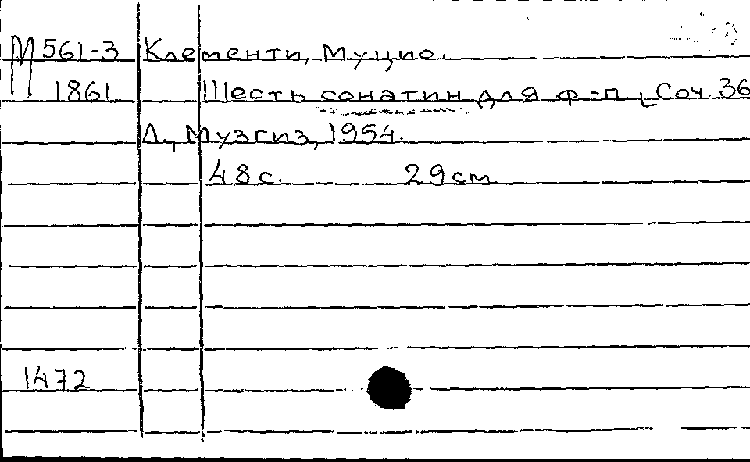 М561-3 Клементи, Муцио.
1861 Шесть сонатин для ф-п Соч. 36
Л., Музгиз, 1954.
48с. 29см.
1472